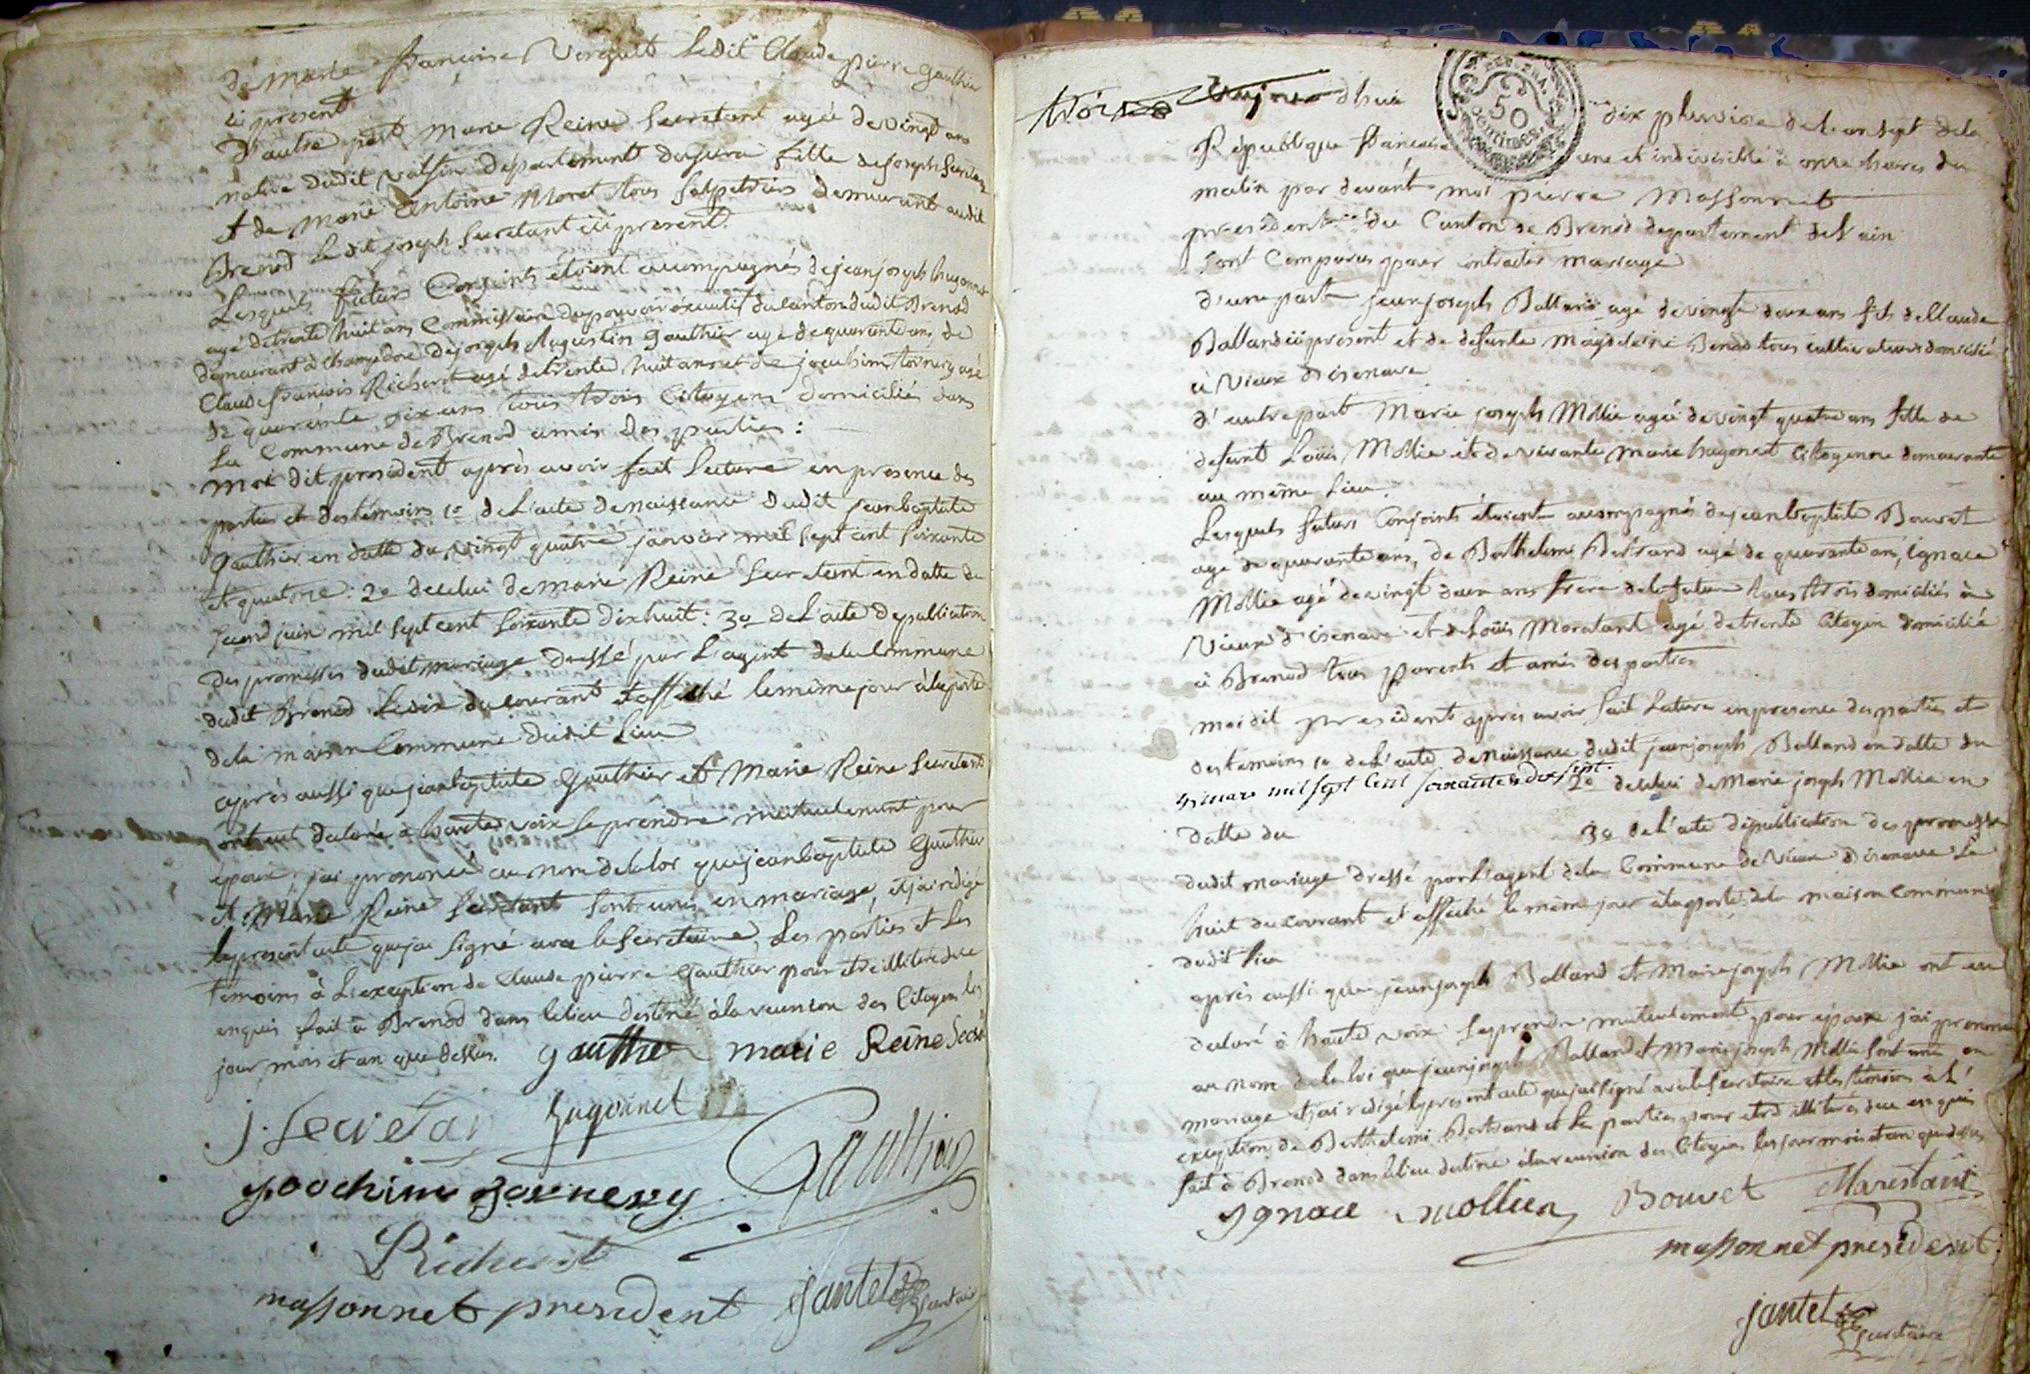 de Marie francoise Verguet Ledit Claude pierre gauthier
ici present
D'autre part Marie Reine Secretant agée de vingt ans
native dudit departement du jura fille de joseph Secretant
et de Marie antoine Moret tous Salpetriers demeurant audit
Brenod Ledit joseph Secretant ici present.
Lesquels futurs Conjoints étoient accompagnés de jean joseph hugonnet
agé de trente huit ans Commissaire du pouvoir éxecutif du canton dudit Brenod
demeurant à Champdore de joseph Augustin gauthier agé de quarante ans de
Claude francois Richerot agé de trente huit ans et de joachim agé
de quarante six ans tous trois Citoyens domiciliés dans
La Commune de Brenod amis des parties :
Moi dit president après avoir fait Lecture en presence des
parties et des temoins 1o de L'acte de naissance dudit jean baptiste
gauthier en datte du vingt quatre janvier mil sept cent soixante
et quatorze : 2o de celui de marie Reine Secretant en datte du
second juin mil sept cent soixante dix huit : 3o de L'acte de publication
des promesses dudit mariage dressé par L'agent de la Commune
dudit Brenod le six du courant et affiché le même jour à la porte
de la maison Commune dudit Lieu
après aussi que jean baptiste Gauthier et Marie Reine Secretant
ont eut declaré à haute voix se prendre mutuelement pour
epoux, j'ai prononcé au nom de la loi que jean baptiste Gauthier
et Marie Reine Secretant sont unis en mariage, et j'ai redigé
le present acte que j'ai signé avec le Secretaire, Les parties et les
temoins à L'exception de Claude pierre Gauthier pour etre illiteré de ce
enquis fait à Brenod dans le lieu destiné à la reunion des Citoyens les
jour, mois et an que dessus. gauthier marie Reine
j. Secretan hugonnet
joachim Gauthier
Richerot
massonnet president jantet Secretaire
trois aujourdhui dix pluviose de L'an sept de la
Republique francaise une et indivisible à onze heures du
matin par devant moi pierre Massonnet
president du Canton de Brenod departement de L'ain
sont Comparus pour contracter mariage
d'une part jean joseph Balland agé de vingt deux ans fils de Claude
Balland ici present et de defunte Magdeleine tous cultivateurs domiciliés
à Vieux d'isenave
d'autre part Marie joseph Mollie agée de vingt quatre ans fille de
defunt Louis Mollie et de vivante Marie hugonet Citoyenne demeurante
au même Lieu.
Lesquels futurs Conjoints étoient accompagnés de jean baptiste Bouvet
agé de quarante ans, de Berthelemi Bertrand agé de quarante ans, ignace
Mollie agé de vingt deux ans frere de la future tous trois domiciliés à
Vieux d'isenave et de Loüis agé de trente Citoyen domicilié
à Brenod tous parents et amis des parties
moi dit president après avoir fait Lecture en presence des parties et
des temoins 1o de L'acte de naissance dudit jean joseph Balland en datte du
mars mil sept Cent soixante dix sept. 2o de celui de Marie joseph Mollie en
datte du 3o de L'acte de publication des promesses
dudit mariage dressé par L'agent de la Commune de Vieux d'isenave le
huit du courant et affiché le même jour à la porte de la maison commune
dudit lieu
après aussi que jean joseph Balland et Marie joseph Mollie ont eu
declaré à haute voix se prendre mutuelement pour époux j'ai prononcé
au nom de la loi que jean joseph Balland et Marie joseph Mollie sont unis en
mariage et j'ai redigé le present acte que j'ai signé avec le Secretaire et les temoins à L'
exception de Berthelemi Bertrand et les parties pour etre illiterés de ce enquis
fait à Brenod dans le lieu destiné à la reunion des Citoyens les jour mois et an que dessus
ygnace mollien Bouvet
massonnet president
jantet Secretaire
50
centimes